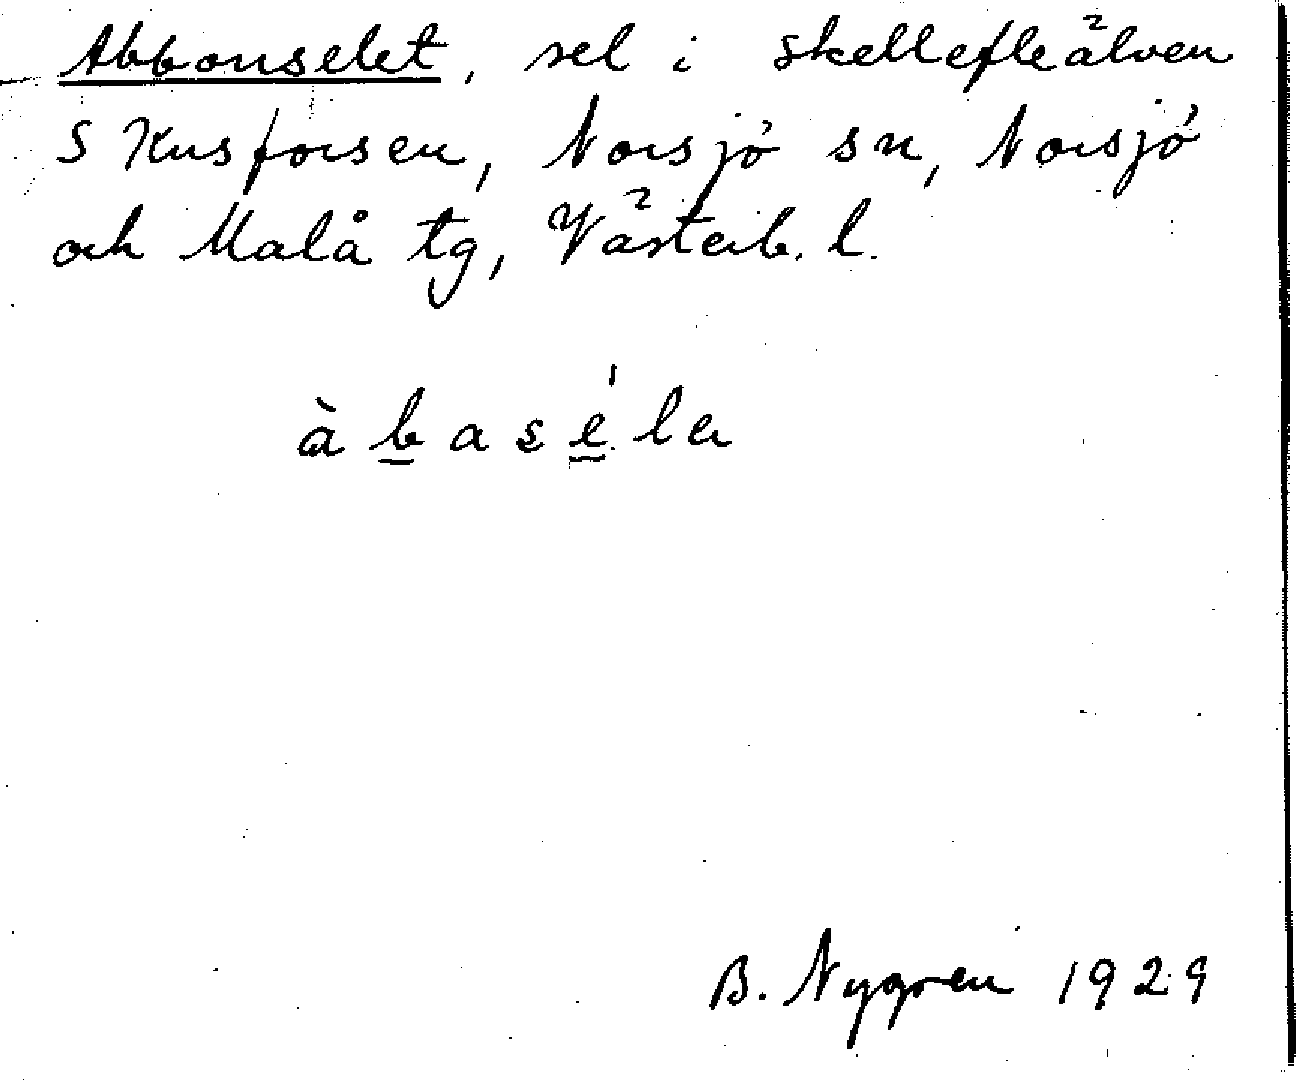 Abbonselet, sel i Skellefteälven
S Kusforsen, Norsjö sn, Norsjö
och Malå tg, Västerb. l.
àbasé́la
B. Nygren 1929